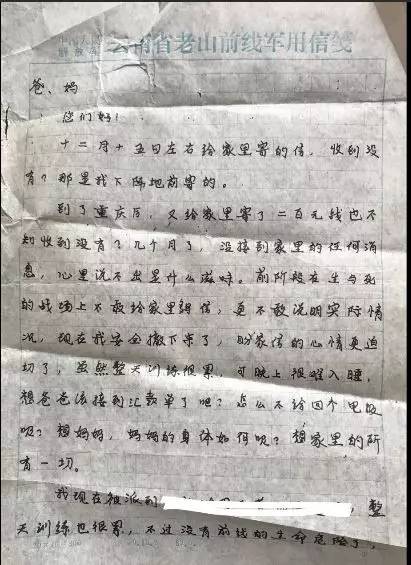 中国人民
解放军 云南省老山前线军用信笺
爸、妈
您们好！
十二月十五日左右给家里寄的信，收到没
有？那是我下阵地前寄的。
到了重庆后，又给家里寄了二百元钱也不
知收到没有？几个月了，没接到家里的任何消
息，心里说不出是什么滋味。前阶段在生与死
的战场上不敢给家里写信，更不敢说明实际情
况，现在我安全撤下来了，盼家信的心情更迫
切了，虽然整天训练很累，可晚上很难入睡，
想爸爸该接到汇款单了吧？怎么不给回个电报
呢？想妈妈，妈妈的身体如何呢？想家里的所
有一切。
我现在被派到 ，整
天训练也很累，不过没有前线的生命危险了，